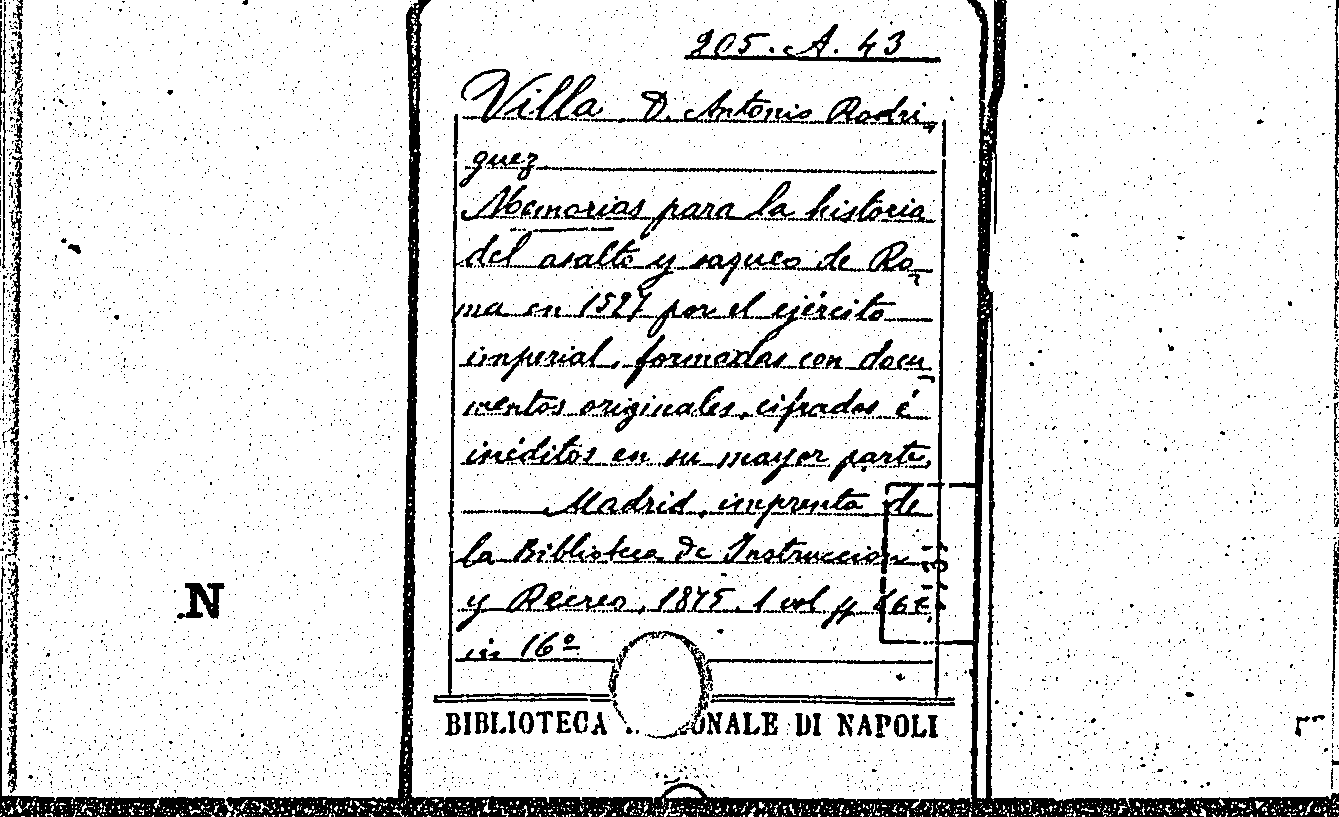 205. A. 43
Villa. D. Antonio Rodri-
guez
Memorias para la historia
del asalto y saqueo de Ro-
ma en 1527 por el ejército
imperial, formadas con docu-
mentos originales, cifrados é
inéditos en su mayor parte.
Madrid, imprenta de
la Biblioteca de Instruccion
y Recreo, 1875. 1 vol pp
in 16º
N
BIBLIOTECA ONALE DI NAPOLI